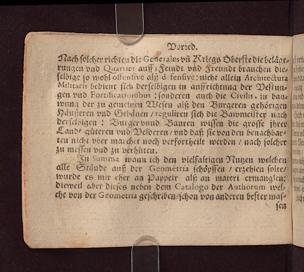 Vorred.
Nach solcher richten die Generales vñ Kriegs Oberste die beläge-
rungen und Quartier auff / Feinde und Freunde brauchen die-
selbige so wohl offensive alß defensive: nicht allein Architectura
Militaris bedient sich derselbigen in auffrichtung der Vestun-
gen und Fortificationibus / sonderen auch die Civilis, in bau-
wung der zu gemeinen Wesen alß den Burgeren gehörigen
Häuseren und Gebäuen / regulieren sich die Bawmeister nach
derselbigen : Burger und Bauren wissen die grösse ihrer
Land güteren und Velderen / und daß sie von den benachbar-
ten nicht über marchet noch verfortheilt werden / nach solcher
zu messen und zu verhüten.
In Summa wann ich den vielfaltigen Nutzen welchen
alle Stände auß der Geometria schöpffen / erzehlen solte /
wurde es mir eher an Pappeir alß an materi ermanglen;
dieweil aber dieses neben dem Catalogo der Authorum wel-
che von der Geometria geschriben / schon von anderen bester mas-
sen